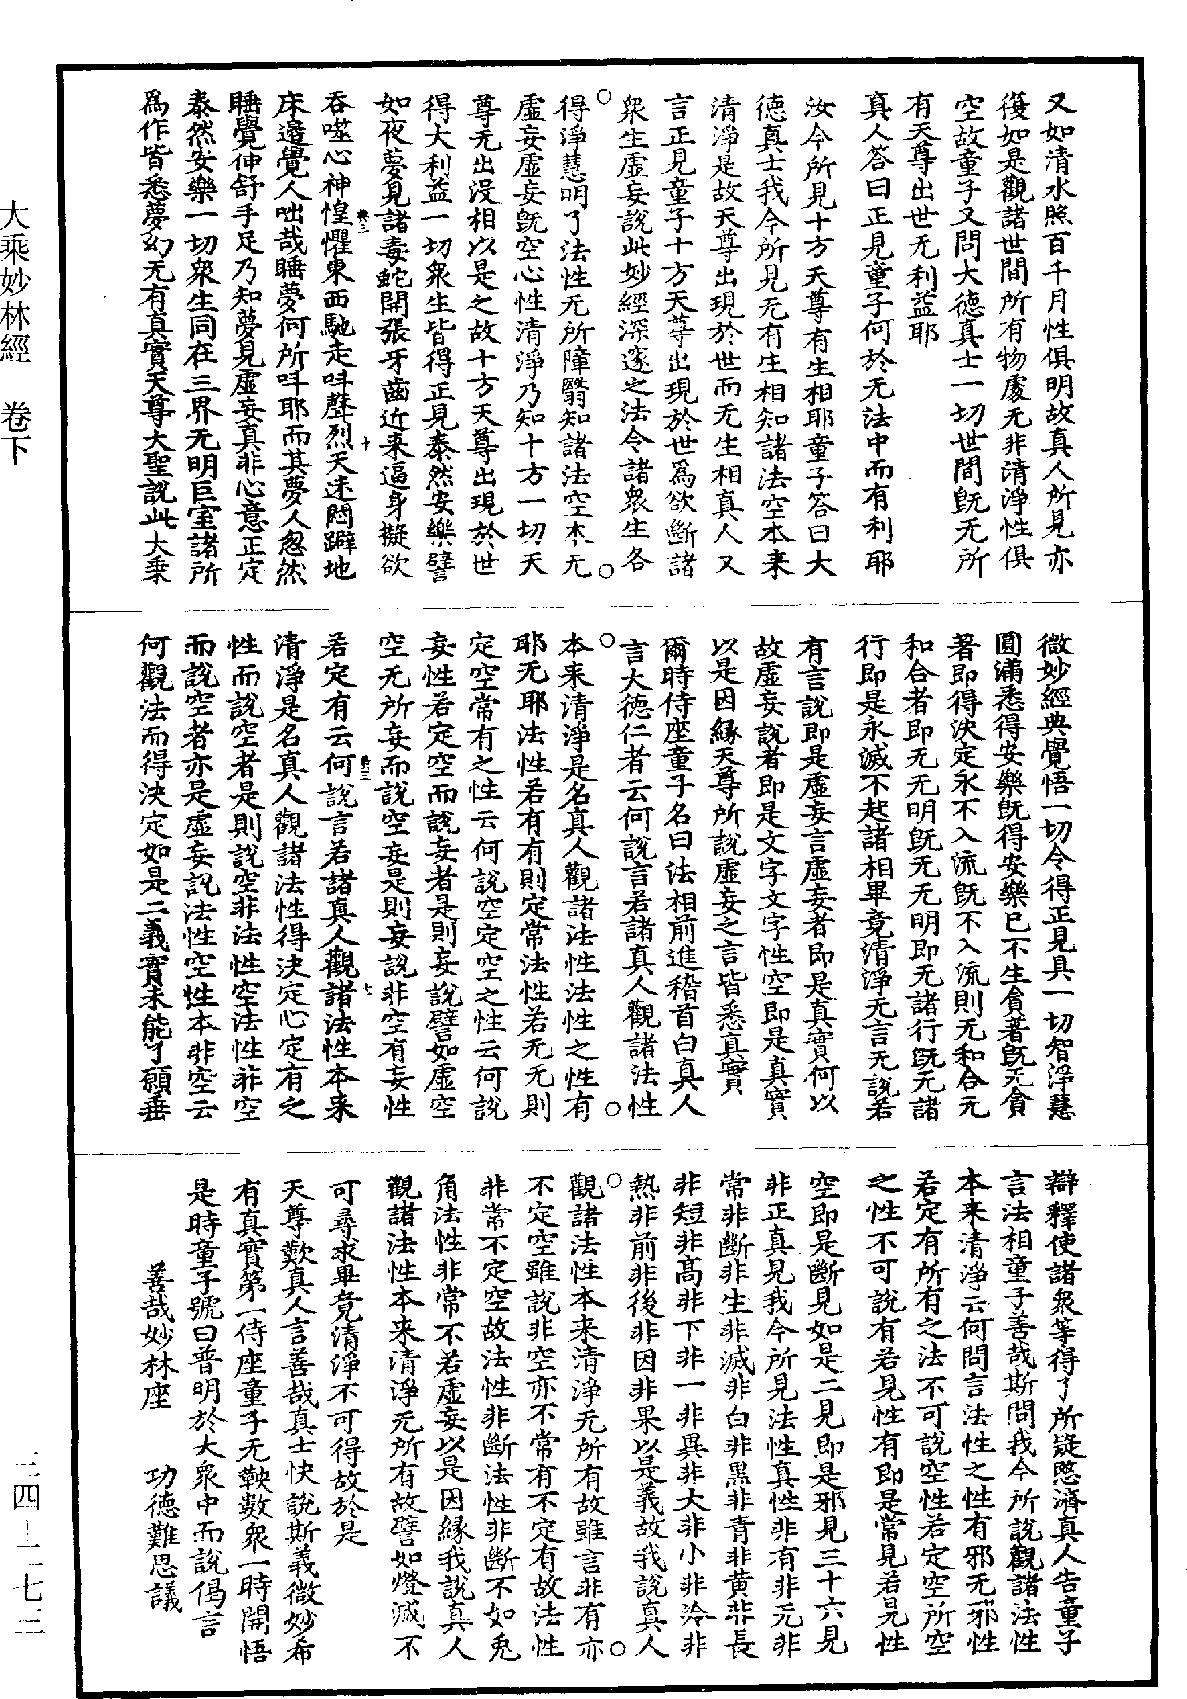 又如清水照百千月性俱明故真人所見亦
復如是觀諸世間所有物處无非清淨性俱
空故童子又問大德真士一切世間旣无所
有天尊出世无利益耶
真人答曰正見童子何於无法中而有利耶
汝今所見十方天尊有生相耶童子答曰大
德真士我今所見无有生相知諸法空本来
清淨是故天尊出現於世而无生相真人又
言正見童子十方天尊出現於世爲欲斷諸
衆生虛妄說此妙經深邃之法令諸衆生各
得淨慧明了法性无所障翳知諸法空本无
虛妄虛妄旣空心性清淨乃知十方一切天
尊无出没相以是之故十方天尊出現於世
得大利益一切衆生皆得正見泰然安樂譬
如夜夢見諸毒蛇開張牙齒近来逼身擬欲
吞噬心神惶懼東西馳走呌聲烈天迷悶躃地
床邊覺人咄哉睡夢何所呌耶而其夢人忽然
睡覺伸舒手足乃知夢見虛妄真非心意正定
泰然安樂一切衆生同在三界无明巨室諸所
爲作皆悉夢幻无有真實天尊大聖說此大乗
微妙經典覺悟一切令得正見具一切智淨慧
圓滿悉得安樂旣得安樂已不生貪著旣无貪
著即得決定永不入流旣不入流則无和合无
和合者即无无明旣无无明即无諸行旣无諸
行即是永滅不起諸相畢竟清淨无言无說若
有言說即是虛妄言虛妄者即是真實何以
故虛妄說者即是文字文字性空即是真實
以是因緣天尊所說虛妄之言皆悉真實
爾時侍座童子名曰法相前進稽首白真人
言大德仁者云何說言若諸真人觀諸法性
本来清淨是名真人觀諸法性法性之性有
耶无耶法性若有有則定常法性若无无則
定空常有之性云何說空定空之性云何說
妄性若定空而說妄者是則妄說譬如虛空
空无所妄而說空妄是則妄說非空有妄性
若定有云何說言若諸真人觀諸法性本来
清淨是名真人觀諸法性得決定心定有之
性而說空者是則說空非法性空法性非空
而說空者亦是虛妄說法性空性本非空云
何觀法而得決定如是二義實未能了願垂
辯釋使諸衆等得了所疑愍濟真人告童子
言法相童子善哉斯問我今所說觀諸法性
本来清淨云何問言法性之性有邪无邪性
若定有所有之法不可說空性若定空所空
之性不可說有若見性有即是常見若見性
空即是斷見如是二見即是邪見三十六見
非正真見我今所見法性真性非有非无非
常非斷非生非滅非白非黑非青非黄非長
非短非高非下非一非異非大非小非冷非
熱非前非後非因非果以是義故我說真人
觀諸法性本来清淨无所有故雖言非有亦
不定空雖說非空亦不常有不定有故法性
非常不定空故法性非斷法性非斷不如兎
角法性非常不若虛妄以是因緣我說真人
觀諸法性本来清淨无所有故譬如燈滅不
可尋求畢竟清淨不可得故於是
天尊歎真人言善哉真士快說斯義微妙希
有真實第一侍座童子无鞅數衆一時開悟
是時童子號曰普明於大衆中而說偈言
善哉妙林座　功德難思議
大乘妙林經　卷下
三四—二七三